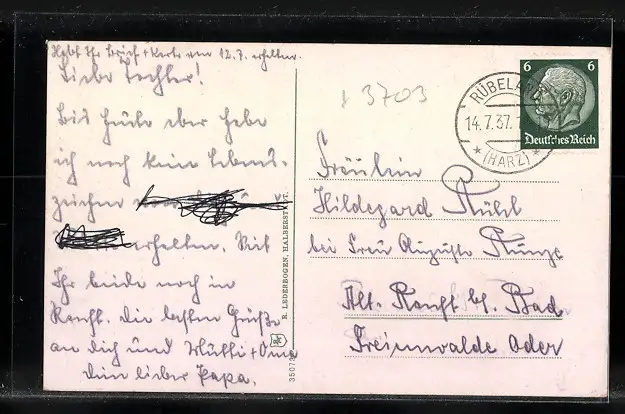 Habt Ihr Brief + Karte vom 12.7. erhalten.
Liebe Tochter!
Bis heute aber habe
ich noch kein Lebens-
zeichen
erhalten. Seit
Ihr beide noch in
Ranft. Die besten Grüße
an dich und Mutti + Oma
Dein lieber Papa.
R. LEDERBOGEN, HALBERSTADT.
3703
RÜBELAND
14.7.37.
(HARZ)
6 6
Deutsches Reich
Fräulein
Hildegard Kühl
bei Frau Auguste Kunze
Alt. Ranft bh. Bad.
Freienwalde Oder